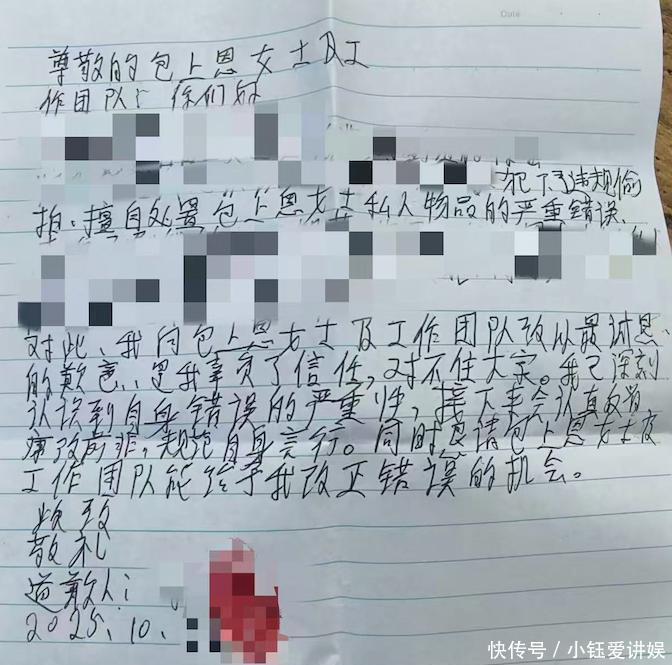 尊敬的包上恩女士及工
作团队：你们好
犯下违规偷
拍、擅自处置包上恩女士私人物品的严重错误、
对此、我向包上恩女士及工作团队致以最诚恳
的歉意、是我辜负了信任，对不住大家。我已深刻
认识到自身错误的严重性，接下来会认真反省
痛改前非，规范自身言行。同时恳请包上恩女士及
工作团队能给予我改正错误的机会。
此致
敬礼
道歉人：
2025.10.
快传号／小钰爱讲娱